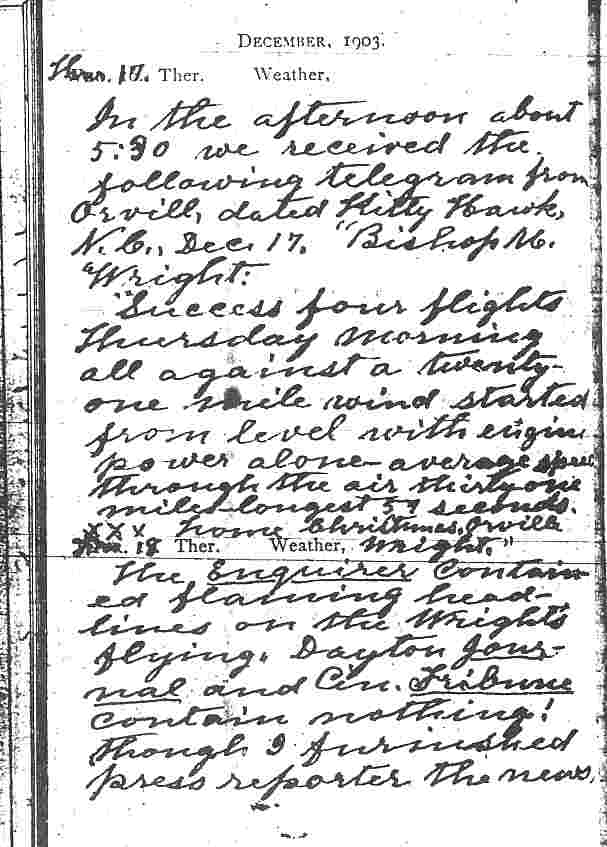 DECEMBER, 1903.
Thur. 17. Ther. Weather,
In the afternoon about
5:30 we received the
following telegram from
Orvill, dated Kitty Hawk,
N.C., Dec. 17. "Bishop M.
"Wright:
"Success four flights
Thursday morning
all against a twenty-
one mile wind started
from level with engine
power alone-average speed
through the air thirty-one
miles-longest 57 seconds.
xxx home Christmas. Orville
18 Ther. Weather, Wright."
The Enquirer contain-
ed flaming head-
lines on the Wright's
flying. Dayton Jour-
nal and Cin. Tribune
contain nothing!
though I furnished
press reporter the news.